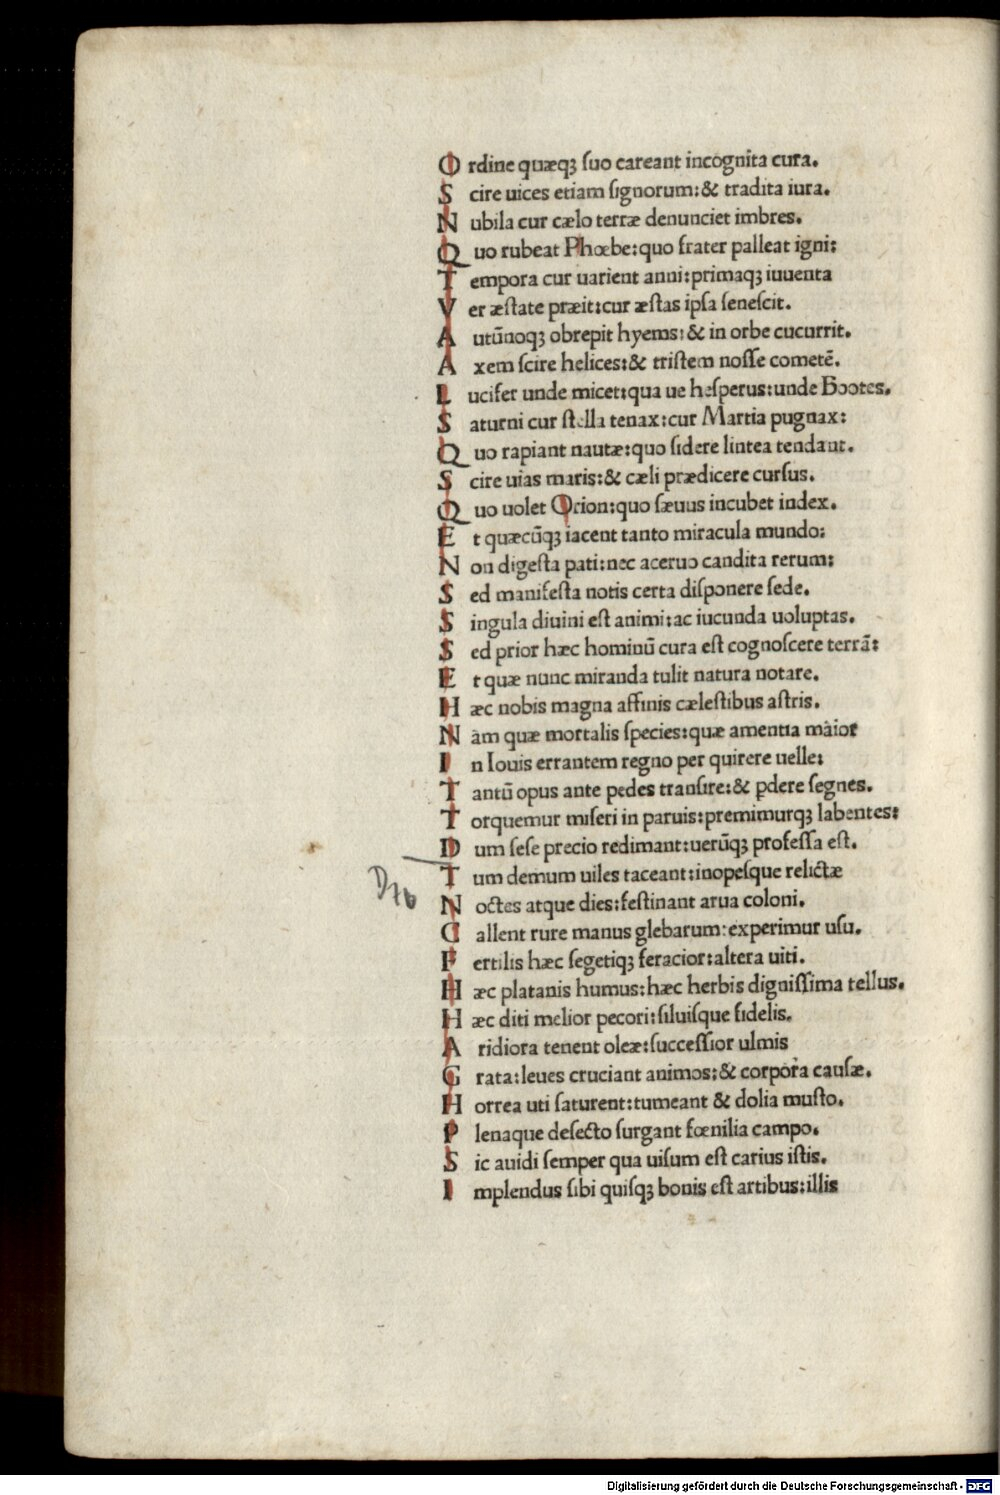 O rdine quæqꝫ ſuo careant incognita cura.
S cire uices etiam ſignorum:& tradita iura.
N ubila cur cælo terræ denunciet imbres.
Q uo rubeat Phœbe:quo frater palleat igni:
T empora cur uarient anni:primaqꝫ iuuenta
V er æſtate præit:cur æſtas ipſa ſeneſcit.
A utūnoqꝫ obrepit hyems:& in orbe cucurrit.
A xem ſcire helices:& triſtem noſſe cometē.
L ucifer unde micet:qua ue heſperus:unde Bootes.
S aturni cur ſtella tenax:cur Martia pugnax:
Q uo rapiant nautæ:quo ſidere lintea tendant.
S cire uias maris:& cæli prædicere curſus.
Q uo uolet Orion:quo ſæuus incubet index.
E t quæcūqꝫ iacent tanto miracula mundo:
N on digeſta pati:nec aceruo candita rerum:
S ed manifeſta notis certa diſponere ſede.
S ingula diuini eſt animi:ac iucunda uoluptas.
S ed prior hæc hominū cura eſt cognoſcere terrā:
E t quæ nunc miranda tulit natura notare.
H æc nobis magna affinis cæleſtibus aſtris.
N am quæ mortalis ſpecies:quæ amentia maior
I n Iouis errantem regno per quirere uelle:
T antū opus ante pedes tranſire:& pdere ſegnes.
T orquemur miſeri in paruis:premimurqꝫ labentes:
D um ſeſe precio redimant:uerūqꝫ profeſſa eſt.
T um demum uiles taceant:inopeſque relictæ
N octes atque dies:feſtinant arua coloni.
C allent rure manus glebarum:experimur uſu.
F ertilis hæc ſegetiqꝫ feracior:altera uiti.
H æc platanis humus:hæc herbis digniſſima tellus.
H æc diti melior pecori:ſiluiſque fidelis.
A ridiora tenent oleæ:ſucceſſior ulmis
G rata:leues cruciant animos:& corpora cauſæ.
H orrea uti ſaturent:tumeant & dolia muſto.
P lenaque deſecto ſurgant fœnilia campo.
S ic auidi ſemper qua uiſum eſt carius iſtis.
I mplendus ſibi quiſqꝫ bonis eſt artibus:illis
Digitalisierung gefördert durch die Deutsche Forschungsgemeinschaft - DFG